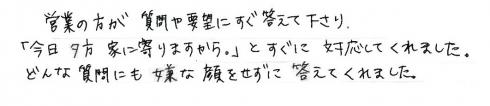 営業の方が 質問や要望にすぐ答えて下さり、
「今日夕方 家に寄りますから。」とすぐに 対応してくれました。
どんな質問にも 嫌な顔をせずに 答えてくれました。